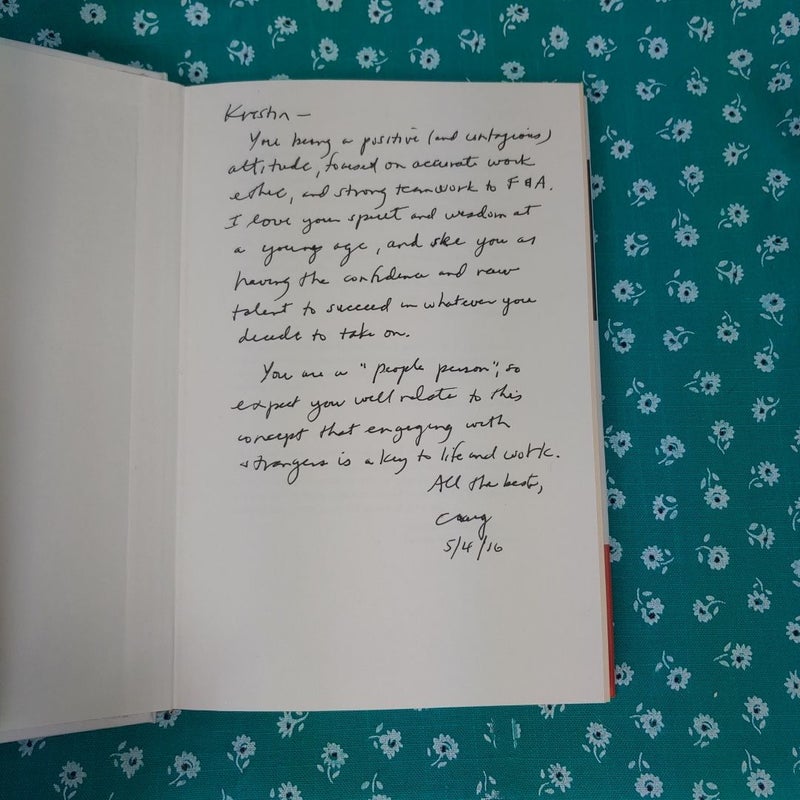 Kristin —
You bring a positive (and contagious)
attitude, focused on accurate work
ethic, and strong teamwork to F & A.
I love your spirit and wisdom at
a young age, and see you as
having the confidence and raw
talent to succeed in whatever you
decide to take on.
You are a "people person", so
expect you will relate to this
concept that engaging with
strangers is a key to life and work.
All the best,
Craig
5/4/16